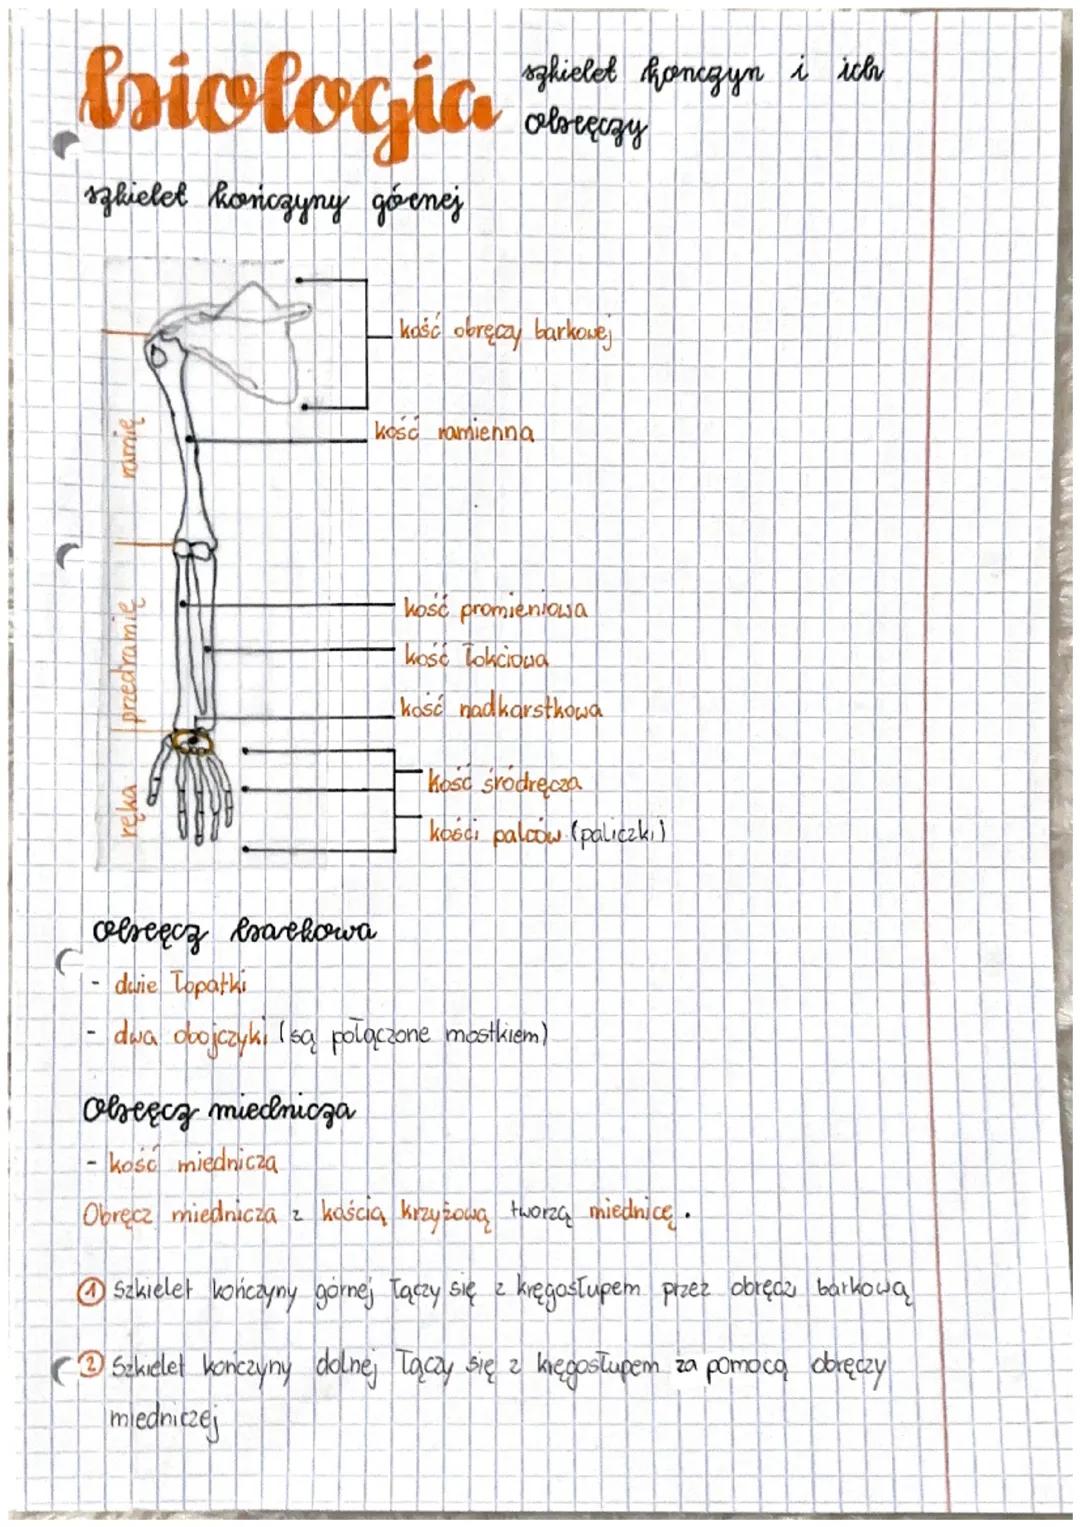 biologia
szkielet kończyn i ich
obręczy
szkielet kończyny górnej
kość obręczy barkowej
kość ramienna
ramię
kość promieniowa
kość łokciowa
przedramię
kość nadkarstkowa
kość śródręcza
ręka
kości palców (paliczki)
obręcz barkowa
- dwie łopatki
- dwa obojczyki (są połączone mostkiem)
obręcz miednicza
- kość miednicza
Obręcz miednicza z kością krzyżową tworzą miednicę.
1 Szkielet kończyny górnej łączy się z kręgosłupem przez obręcz barkową
2 Szkielet kończyny dolnej łączy się z kręgosłupem za pomocą obręczy
miedniczej